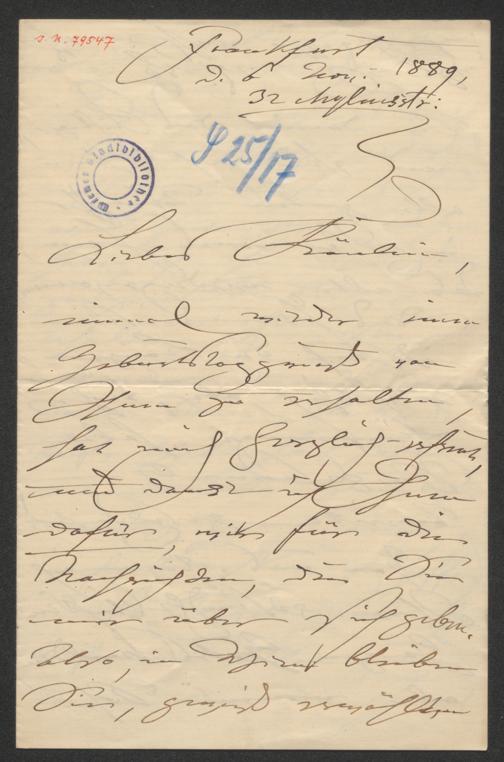 J. N. 79547
Frankfurt
d. 6 Nov. 1889,
32 Myliusstr:
Wiener Stadtbibliothek
25/17
Liebes Fräulein,
einmal wieder einen
Geburtstagsgruß von
Ihnen zu erhalten,
hat mich herzlich erfreut,
und danke ich Ihnen
dafür, wie für die
Nachrichten, die Sie
mir über sich geben.
Also, in Wien bleiben
Sie,